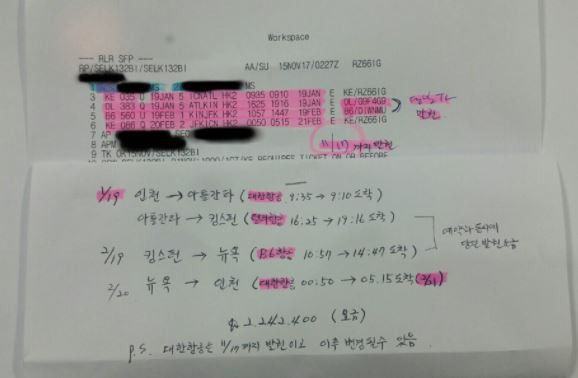 Workspace
--- RLR SFP ---
RP/SELK132BI/SELK132BI AA/SU 15NOV17/0227Z RZ66IG
MS
3 KE 035 U 19JAN 5 ICNATL HK2 0935 0910 19JAN E KE/RZ66IG
4 DL 383 Q 19JAN 5 ATLKIN HK2 1625 1916 19JAN E DL/G9F4G9
5 B6 560 U 19FEB 1 KINJFK HK2 1057 1447 19FEB E B6/DIWNMU
6 KE 086 Q 20FEB 2 JFKICN HK2 0050 0515 21FEB E KE/RZ66IG
발권
7 AP
8 APM
11/17 까지 발권
9 TK OK15NOV/SELK132BI
1/19 인천 → 아틀란타 (대한항공 9:35 → 9:10 도착)
아틀란타 → 킹스턴 (델타항공 16:25 → 19:16 도착)
2/19 킹스턴 → 뉴욕 (B6항공 10:57 → 14:47 도착)
2/20 뉴욕 → 인천 (대한항공 00:50 → 05.15 도착 (2/21)
예약과 동시에
발권 요금
₩ 2.242.400 (요금)
P.S. 대한항공은 11/17 까지 발권이고 이후 변경될수 있음